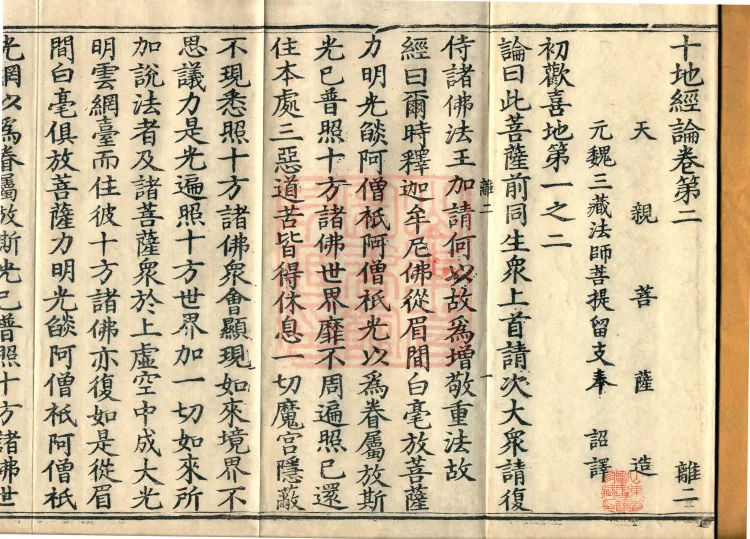 十地經論卷第二 離二
天親菩薩造
元魏三藏法師菩提留支奉 詔譯
初歡喜地第一之二
論曰此菩薩前同生衆上首請次大衆請復
離二 一
侍諸佛法王加請何以故爲增敬重法故
經曰爾時釋迦牟尼佛從眉間白毫放菩薩
力明光燄阿僧祇阿僧祇光以爲眷屬放斯
光已普照十方諸佛世界靡不周遍照已還
住本處三惡道苦皆得休息一切魔宮隱蔽
不現悉照十方諸佛衆會顯現如來境界不
思議力是光遍照十方世界加一切如來所
加說法者及諸菩薩衆於上虛空中成大光
明雲網臺而住彼十方諸佛亦復如是從眉
間白毫俱放菩薩力明光燄阿僧祇阿僧祇
光網以爲眷屬放斯光已普照十方諸佛世